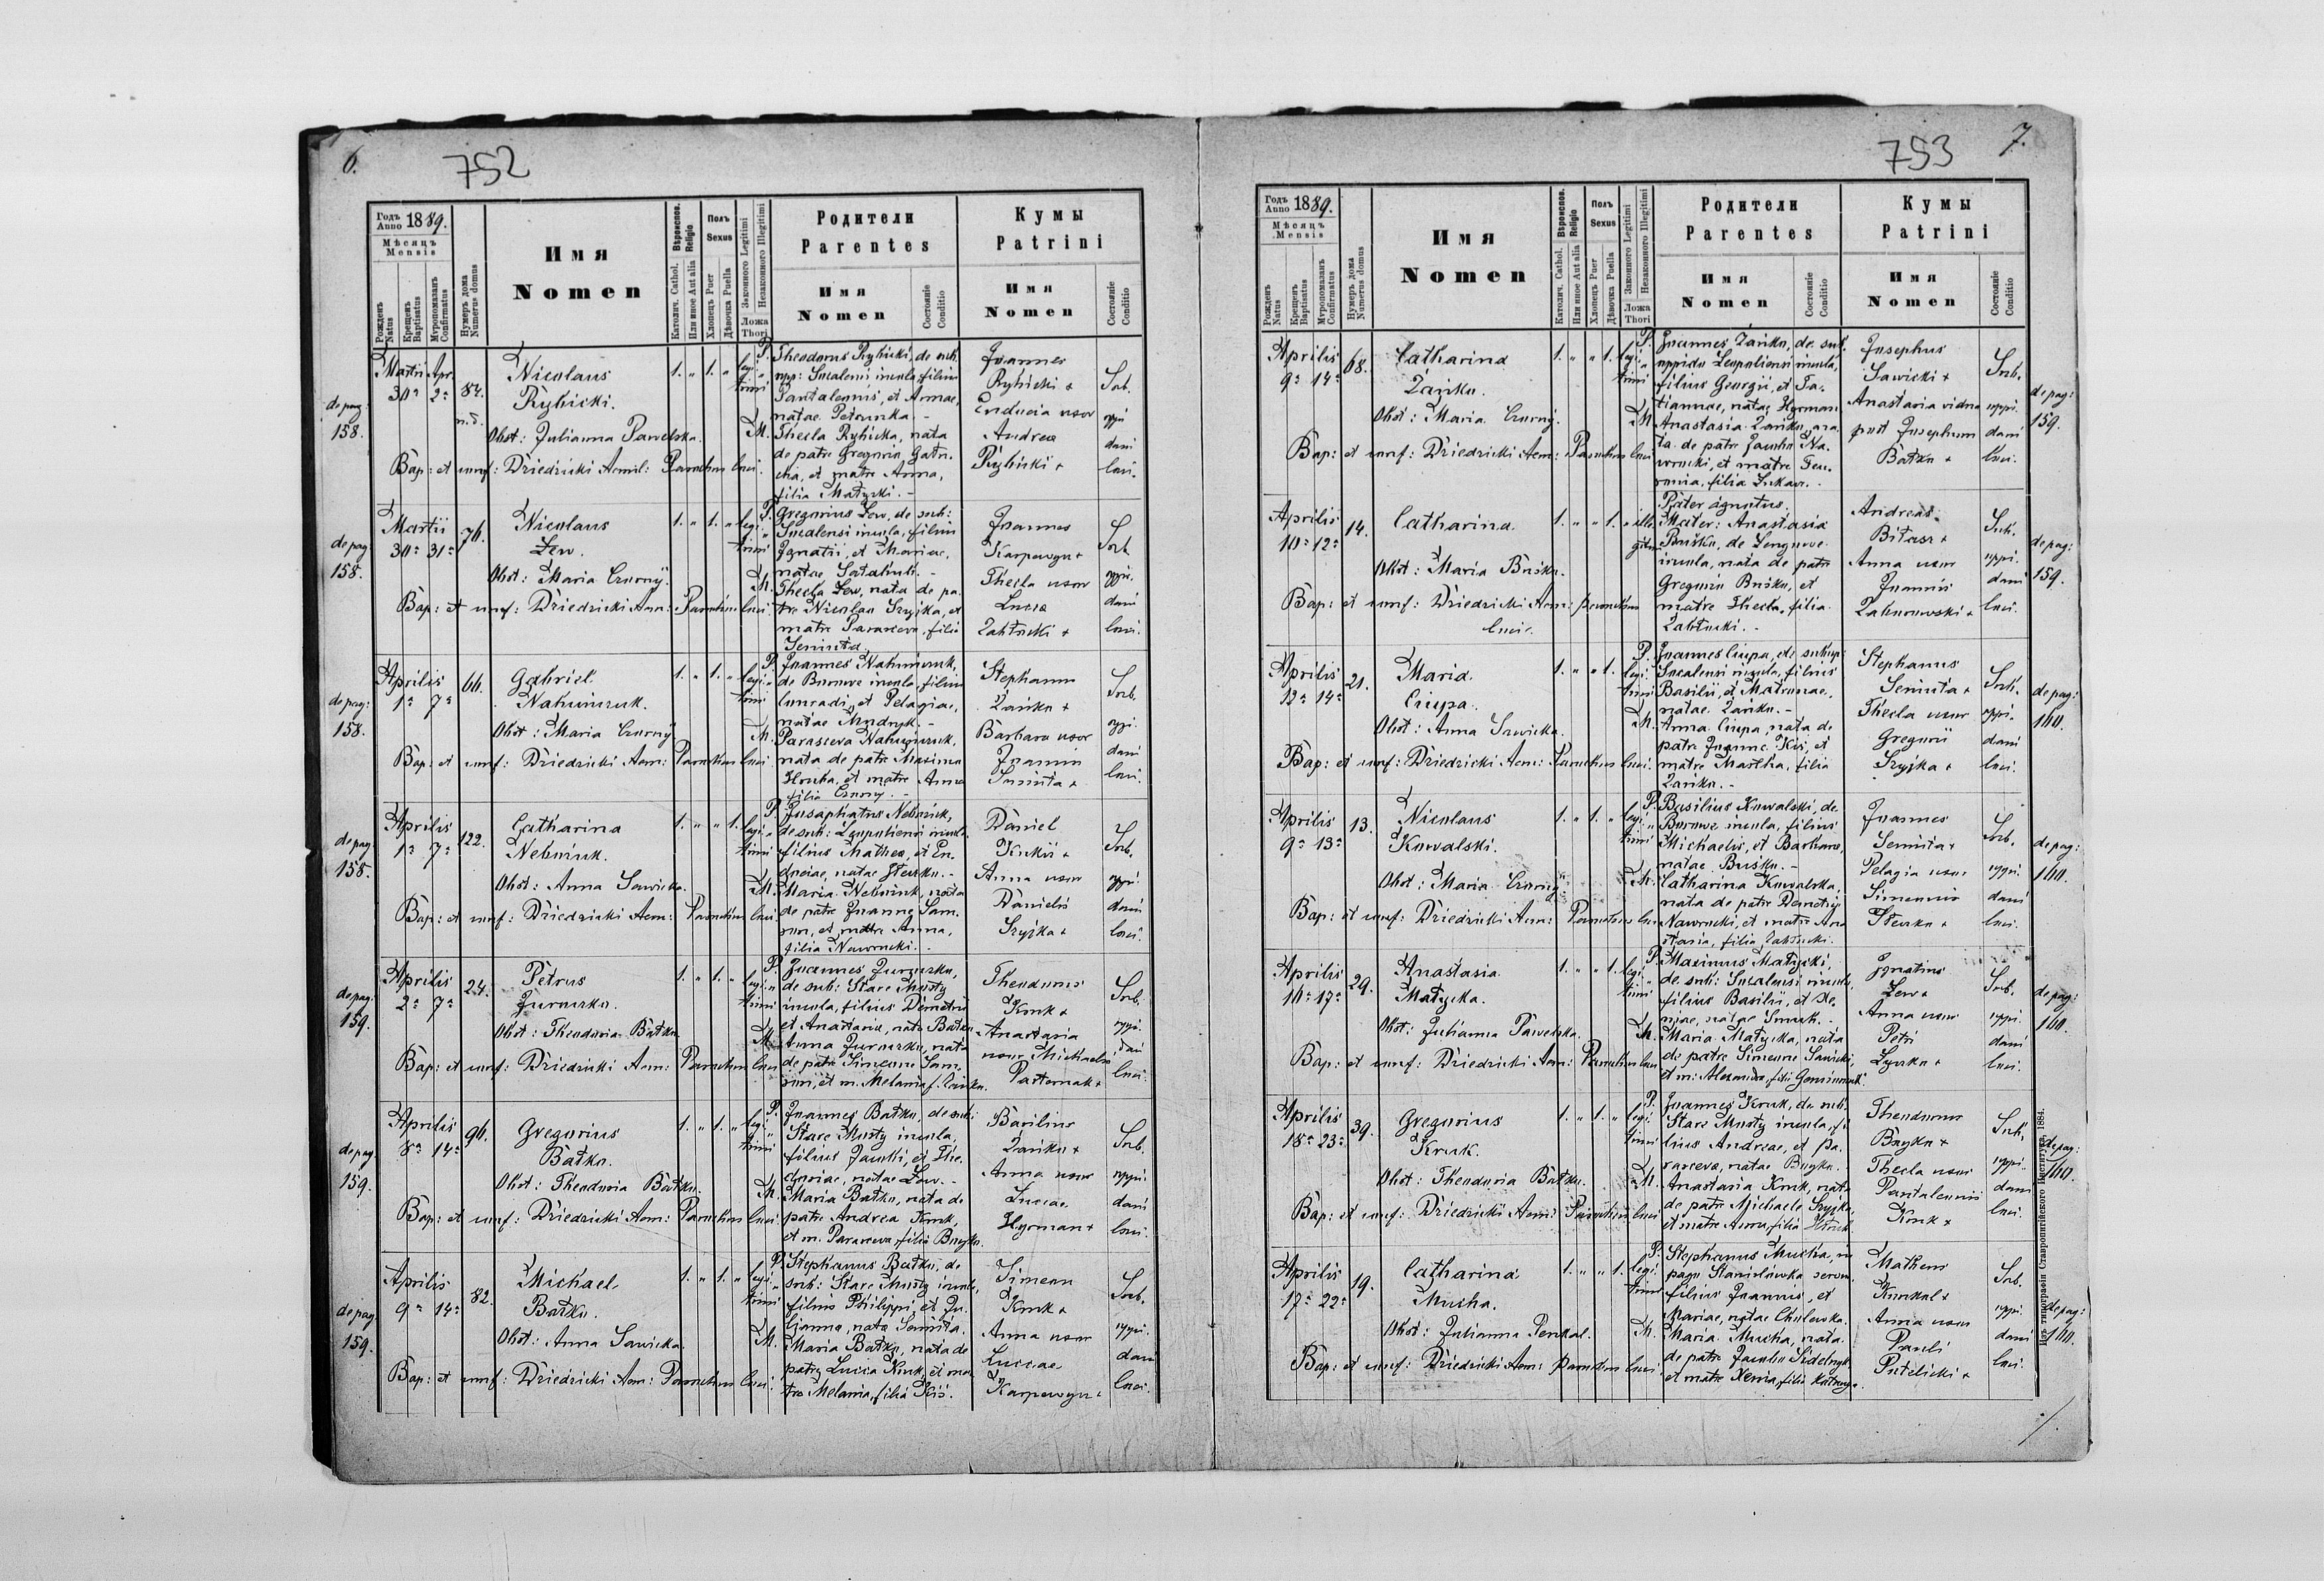 6.
752
Годъ Anno 1889.
Мѣсяцъ Mensis
Рожденъ Natus
Крещенъ Baptisatus
Мѵропомазанъ Confirmatus
Нумеръ дома Numerus domus
Имя
Nomen
Вѣроиспов. Religio
Католич. Cathol.
Или иное Aut alia
Полъ Sexus
Хлопецъ Puer
Дѣвочка Puella
Законного Legitimi
Незаконного Illegitimi
Ложа Thori
Родители
Parentes
Имя
Nomen
Состояніе Conditio
Кумы
Patrini
Имя
Nomen
Состояніе Conditio
de pag: 158.
Martii Apr.
30a 2a 84.
n.d.
Nicolaus
Rybicki.
Obst: Julianna Pawelska.
Bap: et conf: Driedzicki Aemil: Parochus loci.
1. " 1. " legitimi
P. Theodorus Rybicki, de sub:
opp: Socalensi incola, filius
Pantalemonis, et Annae,
natae Petrunka. -
M. Thecla Rybicka, nata
de patre Gregorio
et matre Anna,
filia Matycki. -
Joannes
Rybicki +
Eudocia uxor
Andrea
Rybicki +
Sub.
oppi
dani
loci.
de pag 158.
Martii
30a 31a 76.
Nicolaus
Lew.
Obst: Maria Czorny.
Bap: et conf: Driedzicki Aem: Parochus loci.
1. " 1. " legitimi
P. Gregorius Lew, de sub:
Socalensi incola, filius
Ignatii, et Mariae,
natae
M. Thecla Lew, nata de pa-
tre Nicolao Szyjka, et
matre Parasceva, filia
Seniuta.
Joannes
Karpowycz +
Thecla uxor
Lucae
Zabłocki +
Sub.
oppi.
dani
loci.
de pag: 158.
Aprilis
1a 7a 66.
Gabriel
Nahuiczuk.
Obst: Maria Czorny
Bap: et conf: Driedzicki Aem: Parochus loci.
1. " 1. " legitimi
P. Joannes Nahuiczuk,
de Borowe incola, filius
Concadi, et Pelagiae,
natae Mudryk. -
M. Parasceva Nahuiczuk,
nata de patre Maximo
et matre Anna
filia Czorny. -
Stephanus
Zańko +
Barbara uxor
Joannis
Seniuta +
Sub.
oppi.
dani
loci.
de pag 158.
Aprilis
1a 7a 122.
Catharina
Obst: Anna Sawicka.
Bap: et conf: Driedzicki Aem: Parochus loci
1. " " 1. legitimi
P. Josaphatus
de sub: Leopoliensi incola
filius Mathea, et Eu-
dociae, natae Stecko. -
M. Maria nata
de patre Joanne Sam-
son, et matre Anna,
filia Nawrocki. -
Daniel
Anna uxor
Danielis
Szyjka +
Sub.
oppi.
dani
loci.
de pag. 159.
Aprilis
2a 7a 24.
Petrus
Jurczko.
Obst: Theodoria Bałko
Bap: et conf: Driedzicki Aem: Parochus loci
1. " 1. " legitimi
P. Joannes Jurczko,
de sub: Stare Miasty
incola, filius Demetrii
et Anastasia, nata Bałko
M. Anna Jurczko, nata
de patre Simeone Sam-
son, et m. Melania f. Zańko.
Theodorus
Kruk +
Anastasia
uxor Michaelis
Pasternak +
Sub.
oppi.
dani
loci.
de pag 159.
Aprilis
8a 14a 96.
Gregorius
Bałko.
Obst: Theodoria Bałko.
Bap: et conf: Driedzicki Aem: Parochus loci
1. " 1. " legitimi
P. Joannes Bałko, de sub:
Stare Miasty incola,
filius Jacobi, et The-
doriae, natae Lew. -
M. Maria Bałko, nata de
patre Andrea Kruk,
et m. Parasceva, filia Buyko.
Basilius
Zańko +
Anna uxor
Lucae
Hyrman +
Sub.
oppi.
dani
loci.
de pag 159.
Aprilis
9a 14a 82.
Michael
Bałko.
Obst: Anna Sawicka.
Bap: et conf: Driedzicki Aem: Parochus loci.
1. " 1. " legitimi
P. Stephanus Bałko, de
sub: Stare Miasty incola,
filius Philippi, et Ju-
lianna, nata Seniuta.
M. Maria Bałko, nata de
patre Lucia Kruk, et ma-
tre Melania, filia Kiś.
Simeon
Kruk +
Anna uxor
Luccae
Karpowycz +
Sub.
oppi.
dani
loci.
753
7.
Годъ Anno 1889.
Мѣсяцъ Mensis
Рожденъ Natus
Крещенъ Baptisatus
Мѵропомазанъ Confirmatus
Нумеръ дома Numerus domus
Имя
Nomen
Вѣроиспов. Religio
Католич. Cathol.
Или иное Aut alia
Полъ Sexus
Хлопецъ Puer
Дѣвочка Puella
Законного Legitimi
Незаконного Illegitimi
Ложа Thori
Родители
Parentes
Имя
Nomen
Состояніе Conditio
Кумы
Patrini
Имя
Nomen
Состояніе Conditio
Aprilis
9a 14a 68.
Catharina
Zańko.
Obst: Maria Czorny.
Bap: et conf: Driedzicki Aem: Parochus loci
1. " " 1. legitimi
P. Joannes Zańko, de sub.
oppido Leopoliensi incola,
filius Georgii, et Ta-
tiannae, natae Hyrman
M. Anastasia Zańko, na-
ta de patre Jacobo Na-
wrocki, et matre
filia
Josephus
Sawicki +
Anastasia vidua
post Josephum
Bałko +
Sub.
oppi.
dani
loci.
de pag: 159.
Aprilis
10a 12a 14.
Catharina
Obst: Maria Buśko.
Bap: et conf: Driedzicki Aem: parochus
loci.
1. " " 1. " illegitimi
Pater ignotus.
Mater: Anastasia
Buśko, de
incola, nata de patre
Gregorio Buśko, et
matre Thecla, filia
Zabłocki. -
Andreas
Anna uxor
Joannis
Sub.
oppi.
dani
loci.
de pag: 159.
Aprilis
12a 14a 21.
Maria
Ciupa.
Obst: Anna Sawicka.
Bap: et conf: Driedzicki Aem: Parochus loci.
1. " " 1. legitimi
P. Joannes Ciupa, de suburb
Socalensi incola, filius
Basilii, et Matronae,
natae Zańko. -
M. Anna Ciupa, nata de
patre Joanne Kiś, et
matre Martha, filia
Zańko. -
Stephanus
Seniuta +
Thecla uxor
Gregorii
Szyjka +
Sub.
oppi.
dani
loci.
de pag: 160.
Aprilis
9a 13a 13.
Nicolaus
Kowalski.
Obst: Maria Czorny
Bap: et conf: Driedzicki Aem: Parochus loci
1. " 1. " legitimi
P. Basilius Kowalski, de
Borowe incola, filius
Michaelis, et Barbarae,
natae Buśko. -
M. Catharina Kowalska,
nata de patre
Nawrocki, et matre Ana-
stasia, filia Zabłocki.
Joannes
Seniuta +
Pelagia uxor
Simeonis
Stecko +
Sub.
oppi.
dani
loci.
de pag: 160.
Aprilis
16a 17a 29.
Anastasia
Matycka.
Obst: Julianna Pawelska.
Bap: et conf: Driedzicki Aem: Parochus loci
1. " " 1. legitimi
P. Maximus Matycki,
de sub: Socalensi incola,
filius Basilii, et Xe-
niae, natae
M. Maria Matycka, nata
de patre Simeone Sawicki,
et m: Alexandra, filia
Ignatius
Lew +
Anna uxor
Petri
Sub.
oppi.
dani
loci.
de pag: 160.
Aprilis
18a 23a 39.
Gregorius
Kruk.
Obst: Theodoria Bałko.
Bap: et conf: Driedzicki Aemil: Parochus loci
1. " 1. " legitimi
P. Joannes Kruk, de sub:
Stare Miasty incola, fi-
lius Andreae, et Pa-
rasceva, natae Buyko.
M. Anastasia Kruk, nata
de patre Michaele Szyjka,
et matre Anna, filia
Theodorus
Buyko +
Thecla uxor
Pantalemonis
Kruk +
Sub.
oppi.
dani
loci.
de pag: 160.
Aprilis
17a 22a 19.
Catharina
Mucha.
Obst: Julianna
Bap: et conf: Driedzicki Aem: parochus loci
1. " " 1. legitimi
P. Stephanus Mucha, in
pago Stanisłówka
filius Joannis, et
Mariae, natae
M. Maria Mucha, nata
de patre Jacobo
et matre Xenia, filia
Matheus
Anna uxor
Pauli
Sub.
oppi.
dani
loci.
de pag: 160.
Изъ типографіи Ставропигійского Института 1884.